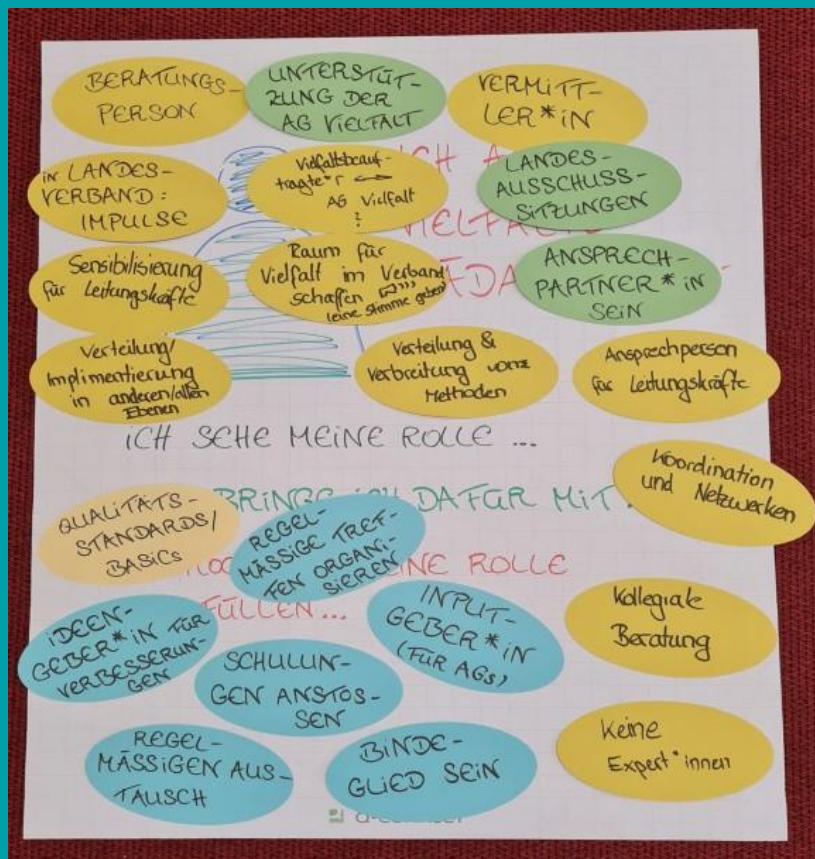 BERATUNGS-
PERSON
UNTERSTÜT-
ZUNG DER
AG VIELFALT
VERMITT-
LER*iN
iN LANDES-
VERBAND:
IMPULSE
Vielfaltsbeauf-
tragte*r ↔
AG Vielfalt
?
LANDES-
AUSSCHUSS-
SiTZUNGEN
iCH A
VIELFALTS
ÄDA
Sensibilisierung
für Leitungskräfte
Raum für
Vielfalt im Verband
schaffen
(eine Stimme geben)
ANSPRECH-
PARTNER*iN
SEiN
Verteilung/
Implimentierung
in anderen/allen
Ebenen
Verteilung &
Verbreitung von
Methoden
Ansprechperson
für Leitungskräfte
iCH SEHE MEiNE ROLLE ...
Koordination
und Netzwerken
BRINGE iCH DAFÜR MiT
QUALiTÄTS-
STANDARDS/
BASiCS
REGEL-
MÄSSiGE TREF-
FEN ORGANi-
SiEREN
EiNE ROLLE
FÜLLEN...
iDEEN-
GEBER*iN FÜR
VERBESSERUN-
GEN
INPUT-
GEBER*iN
(FÜR AGs)
Kollegiale
Beratung
SCHULUN-
GEN ANSTOS-
SEN
REGEL-
MÄSSiGEN AUS-
TAUSCH
BiNDE-
GLiED SEiN
Keine
Expert*innen